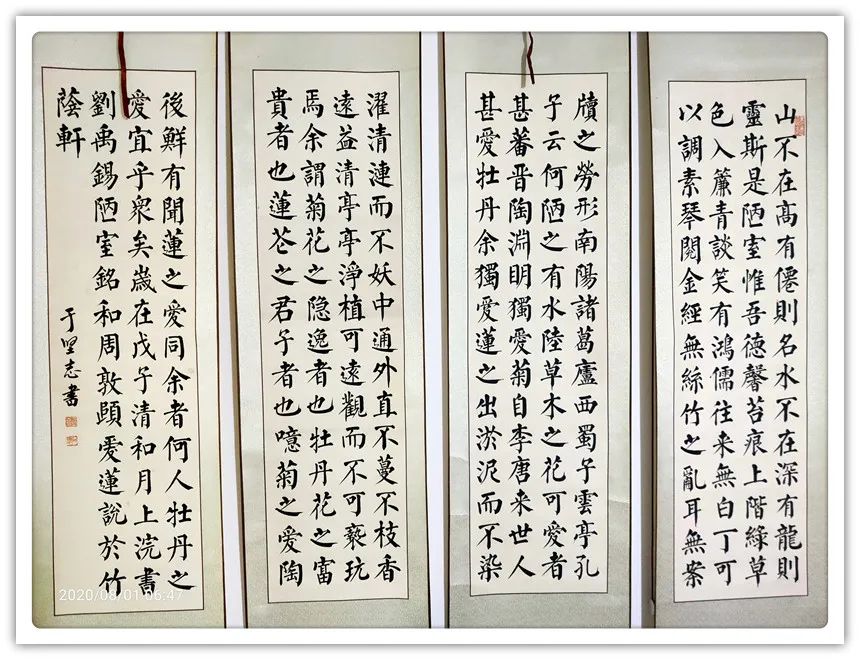 山不在高有僊則名水不在深有龍則
靈斯是陋室惟吾德馨苔痕上階綠草
色入簾青談笑有鴻儒往来無白丁可
以調素琴閱金經無絲竹之亂耳無案
牘之勞形南陽諸葛廬西蜀子雲亭孔
子云何陋之有水陸草木之花可愛者
甚蕃晋陶淵明獨愛菊自李唐来世人
甚愛牡丹余獨愛蓮之出淤泥而不染
濯清漣而不妖中通外直不蔓不枝香
遠益清亭亭淨植可遠觀而不可褻玩
焉余謂菊花之隐逸者也牡丹花之富
貴者也蓮芲之君子者也噫菊之愛陶
後鮮有聞蓮之愛同余者何人牡丹之
愛宜乎衆矣歲在戊子清和月上浣書
劉禹錫陋室銘和周敦頤愛蓮說於竹
蔭軒
于志書
2020/08/01 06:47